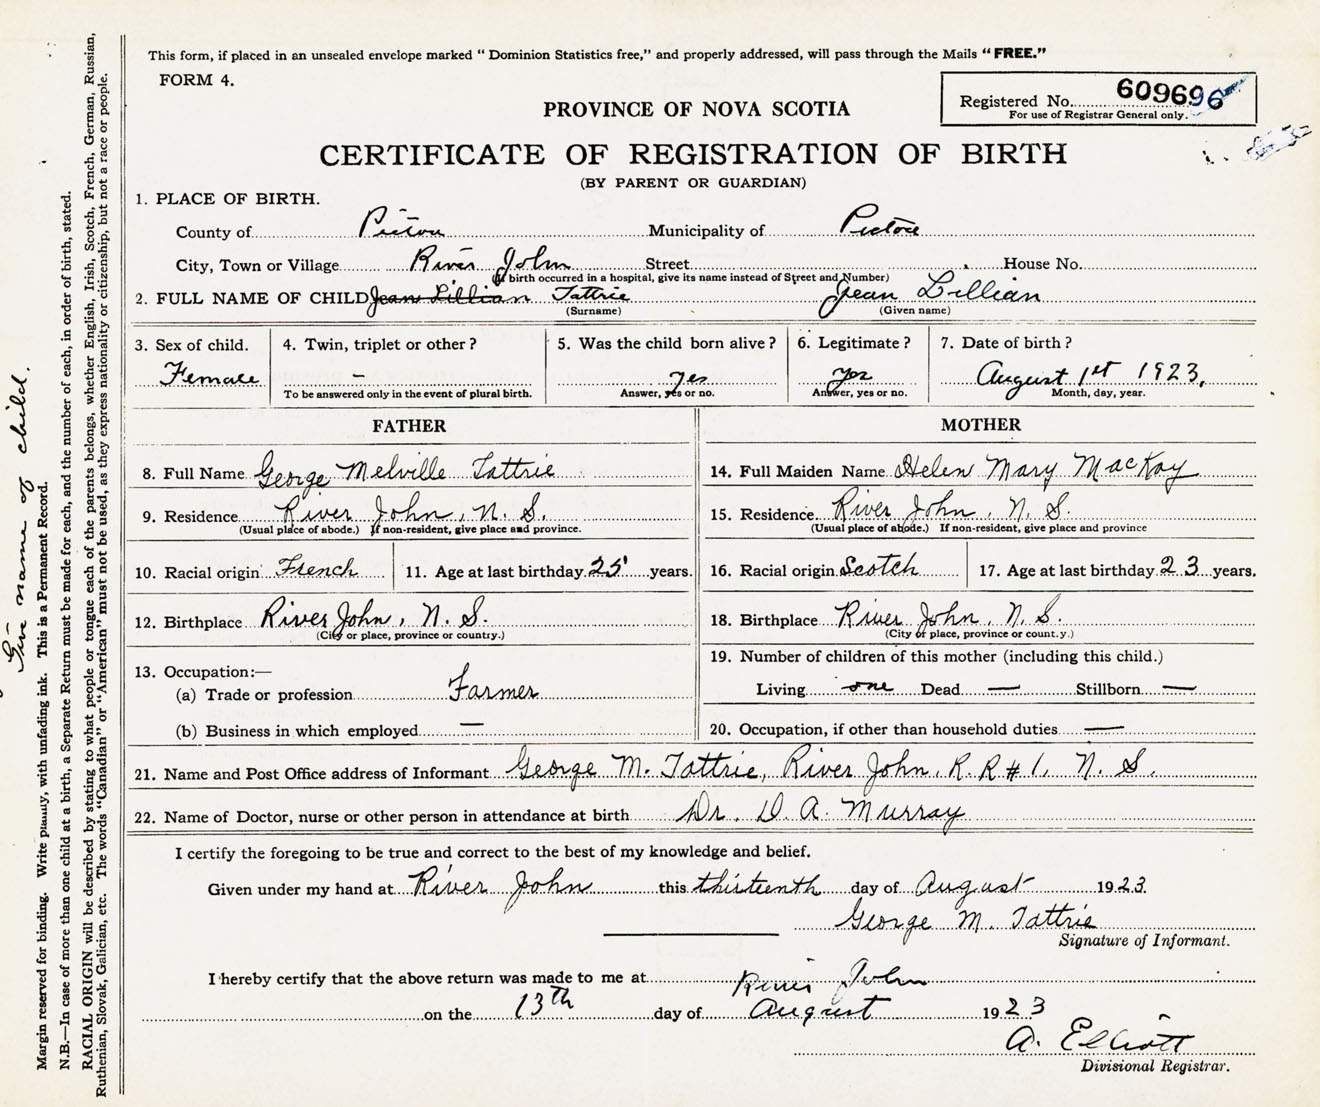 This form, if placed in an unsealed envelope marked "Dominion Statistics free," and properly addressed, will pass through the Mails "FREE."
FORM 4.
Registered No. 609696
For use of Registrar General only.
PROVINCE OF NOVA SCOTIA
CERTIFICATE OF REGISTRATION OF BIRTH
(BY PARENT OR GUARDIAN)
1. PLACE OF BIRTH.
County of Pictou Municipality of Pictou
City, Town or Village River John Street House No.
(If birth occurred in a hospital, give its name instead of Street and Number)
2. FULL NAME OF CHILD Jean Lillian Tattrie Jean Lillian
(Surname) (Given name)
3. Sex of child. 4. Twin, triplet or other? 5. Was the child born alive? 6. Legitimate? 7. Date of birth?
Female — yes yes August 1st 1923.
To be answered only in the event of plural birth. Answer, yes or no. Answer, yes or no. Month, day, year.
FATHER
8. Full Name George Melville Tattrie
9. Residence River John, N. S.
(Usual place of abode.) If non-resident, give place and province.
10. Racial origin French 11. Age at last birthday 25 years.
12. Birthplace River John, N. S.
(City or place, province or country.)
13. Occupation:—
(a) Trade or profession Farmer
(b) Business in which employed —
MOTHER
14. Full Maiden Name Helen Mary MacKay
15. Residence River John, N. S.
(Usual place of abode.) If non-resident, give place and province
16. Racial origin Scotch 17. Age at last birthday 23 years.
18. Birthplace River John, N. S.
(City of place, province or count.y.)
19. Number of children of this mother (including this child.)
Living one Dead — Stillborn —
20. Occupation, if other than household duties —
21. Name and Post Office address of Informant George M. Tattrie, River John, R. R # 1, N. S.
22. Name of Doctor, nurse or other person in attendance at birth Dr. D. A. Murray
I certify the foregoing to be true and correct to the best of my knowledge and belief.
Given under my hand at River John this thirteenth day of August 1923.
George M. Tattrie
Signature of Informant.
I hereby certify that the above return was made to me at River John
on the 13th day of August 1923
A. Elliott
Divisional Registrar.
Give name of child.
Margin reserved for binding. Write plainly, with unfading ink. This is a Permanent Record.
N.B.—In case of more than one child at a birth, a Separate Return must be made for each, and the number of each, in order of birth, stated.
RACIAL ORIGIN will be described by stating to what people or tongue each of the parents belongs, whether English, Irish, Scotch, French, German, Russian,
Ruthenian, Slovak, Galician, etc. The words "Canadian" or "American" must not be used, as they express nationality or citizenship, but not a race or people.